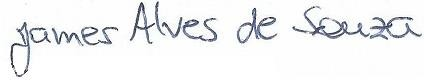 James Alves de Souza